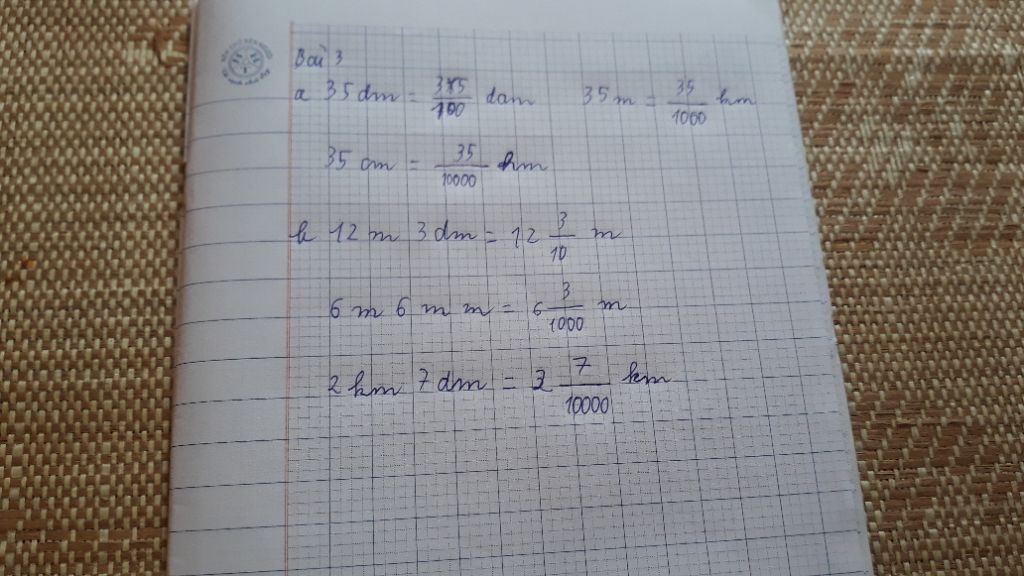 Bài 3
a 35 dm = 35/100 dam 35 m = 35/1000 km
35 cm = 35/10000 hm
b 12 m 3 dm = 12 3/10 m
6 m 6 m m = 6 3/1000 m
2 km 7 dm = 2 7/10000 km